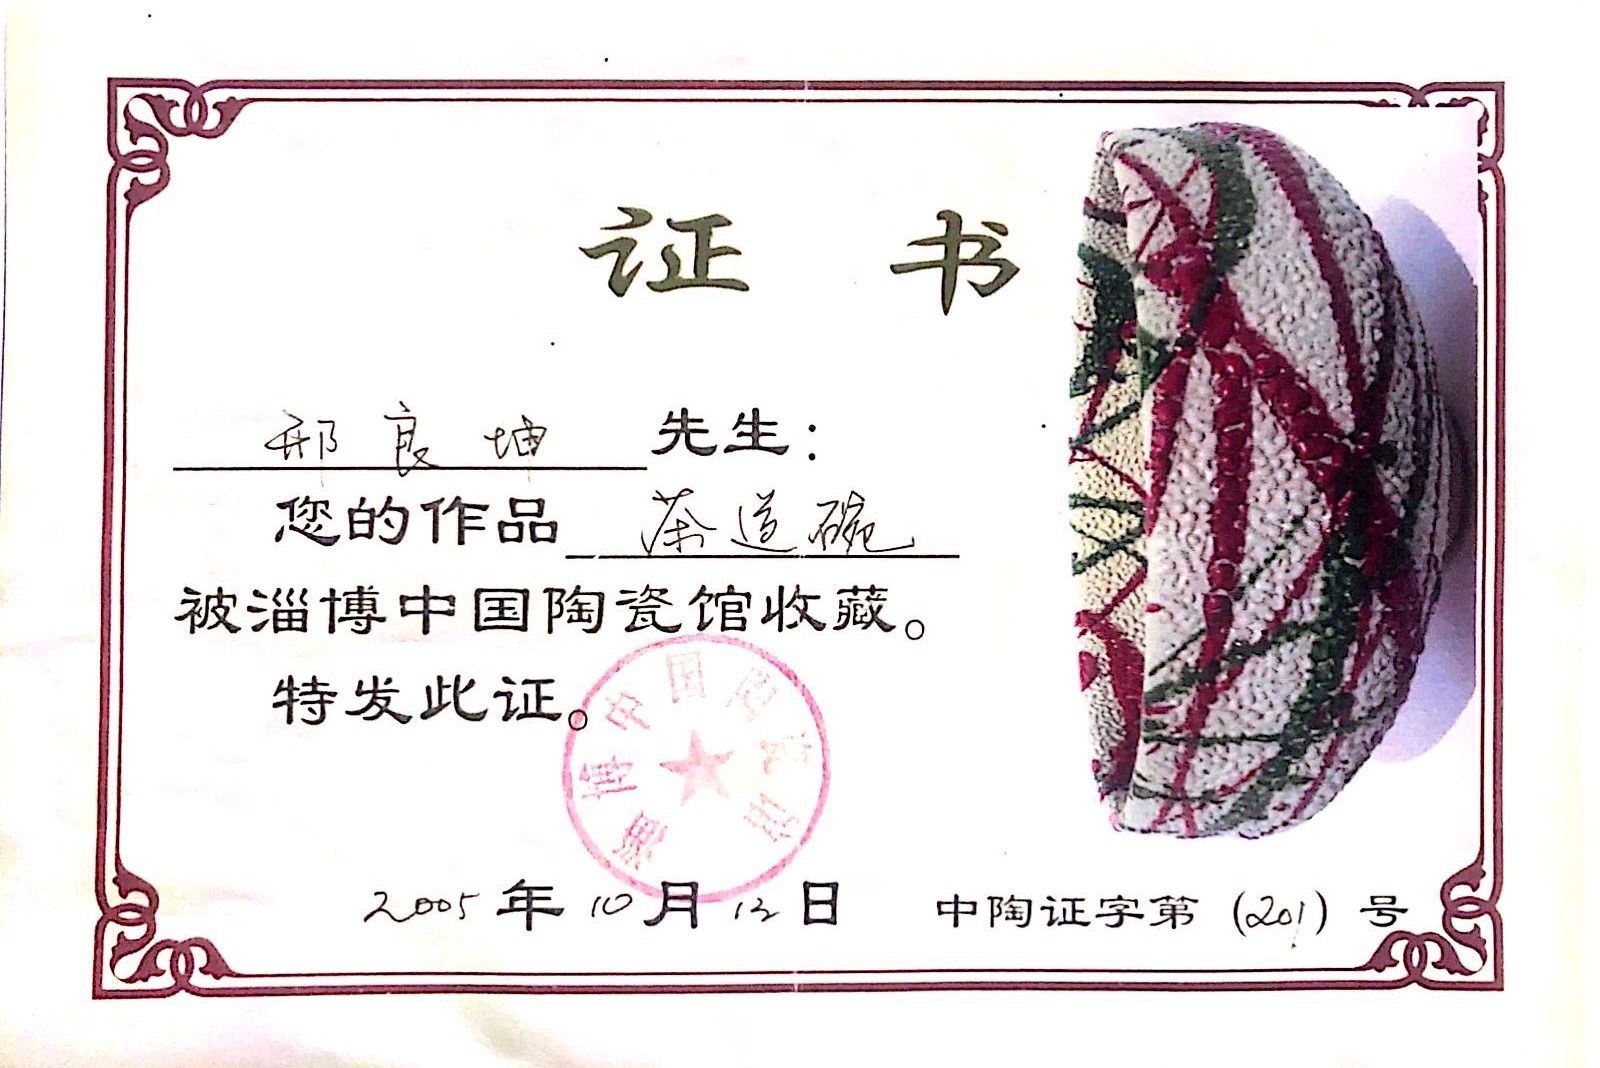 证 书
邢良坤 先生：
您的作品 茶道碗
被淄博中国陶瓷馆收藏。
特发此证。
淄博中国陶瓷馆
2005年10月12日
中陶证字第（201）号